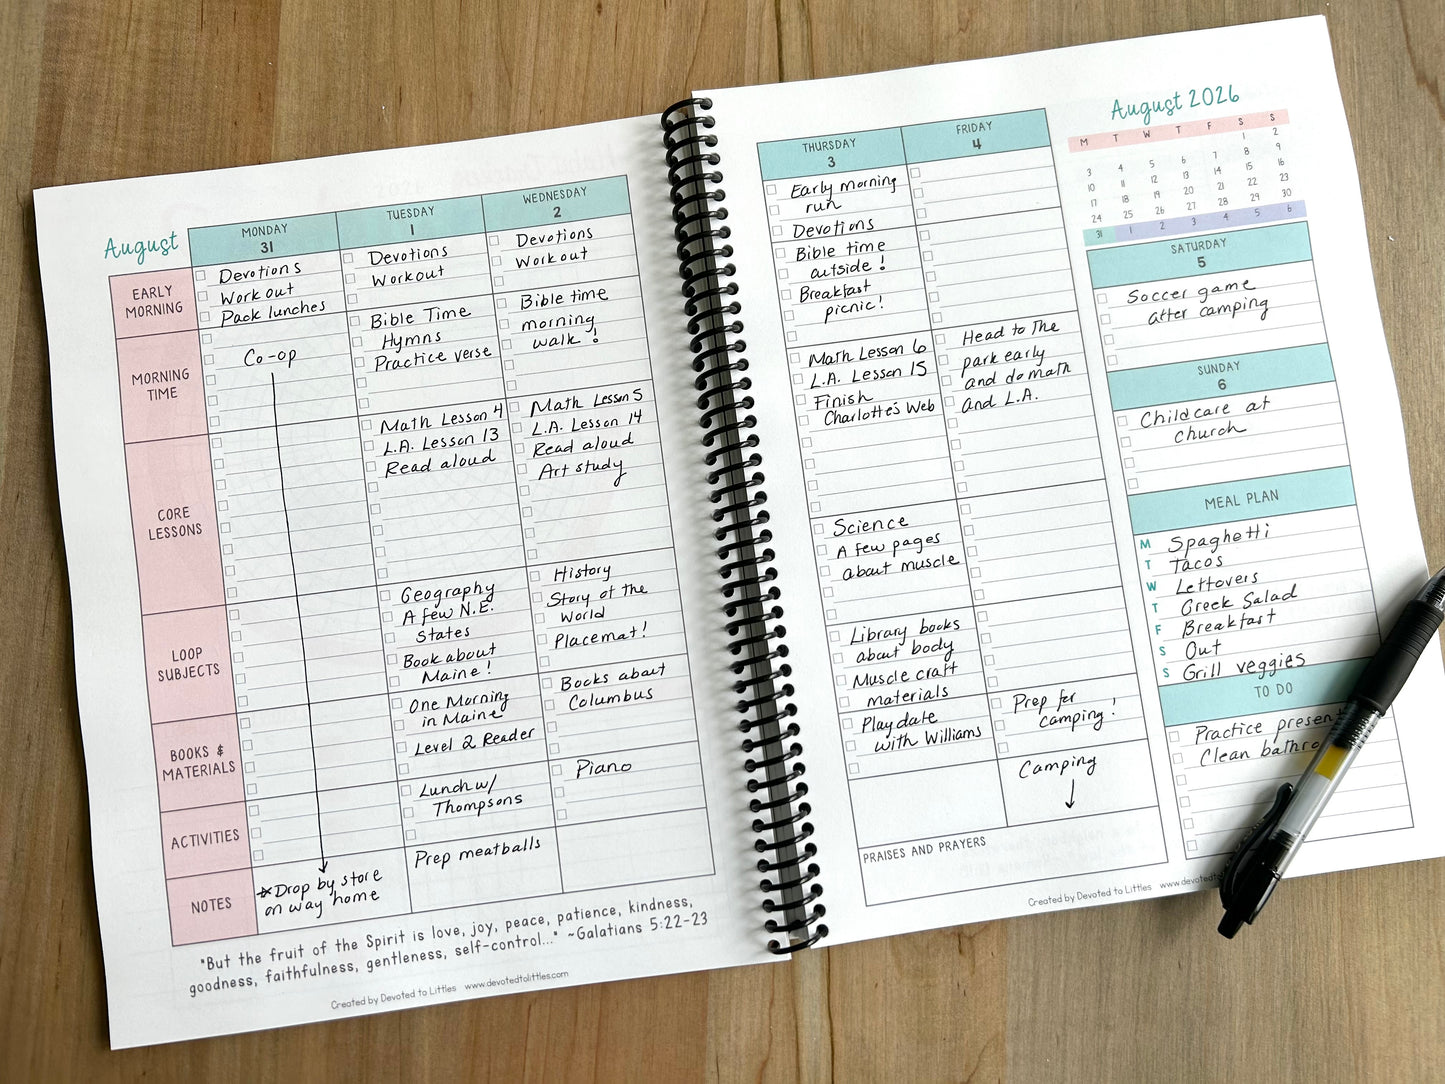 August
MONDAY
31
TUESDAY
1
WEDNESDAY
2
EARLY
MORNING
Devotions
Work out
Pack lunches
Devotions
Workout
Devotions
Workout
MORNING
TIME
Co-op
Bible Time
Hymns
Practice verse
Bible time
morning
walk!
CORE
LESSONS
Math Lesson 4
L.A. Lesson 13
Read aloud
Math Lesson 5
L.A. Lesson 14
Read aloud
Art study
LOOP
SUBJECTS
Geography
A few N.E.
States
Book about
Maine!
History
Story of the
World
Placemat!
BOOKS &
MATERIALS
One Morning
in Maine
Level 2 Reader
Books about
Columbus
ACTIVITIES
Lunch w/
Thompsons
Piano
NOTES
*Drop by store
on way home
Prep meatballs
"But the fruit of the Spirit is love, joy, peace, patience, kindness,
goodness, faithfulness, gentleness, self-control..." ~Galatians 5:22-23
Created by Devoted to Littles www.devotedtolittles.com
THURSDAY
3
FRIDAY
4
Early morning
run
Devotions
Bible time
outside!
Breakfast
picnic!
Math Lesson 6
L.A. Lesson 15
Finish
Charlotte's Web
Head to the
park early
and do math
and L.A.
Science
A few pages
about muscle
Library books
about body
Muscle craft
materials
Playdate
with Williams
Prep for
camping!
Camping
PRAISES AND PRAYERS
Created by Devoted to Littles www.devotedto
August 2026
M T W T F S S
1 2
3 4 5 6 7 8 9
10 11 12 13 14 15 16
17 18 19 20 21 22 23
24 25 26 27 28 29 30
31 1 2 3 4 5 6
SATURDAY
5
Soccer game
after camping
SUNDAY
6
Childcare at
church
MEAL PLAN
M Spaghetti
T Tacos
W Leftovers
T Greek Salad
F Breakfast
S Out
S Grill veggies
TO DO
Practice present
Clean bathro